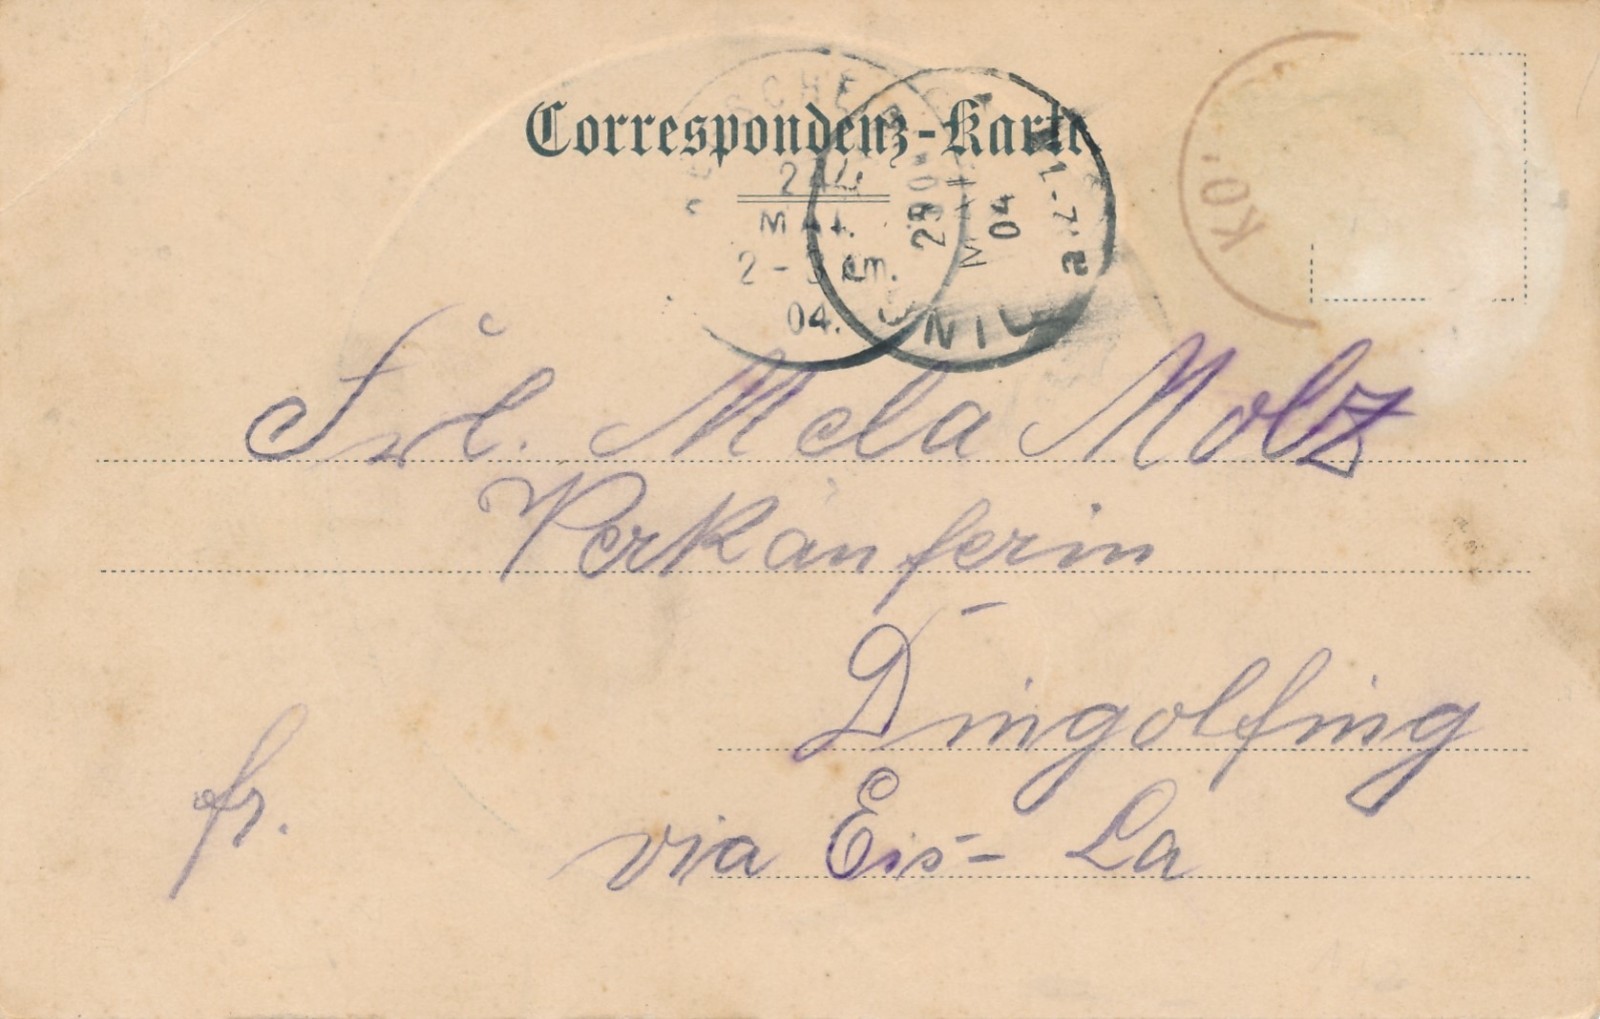 Correspondenz-Karte
24
MAI.
2-3 Nm.
04.
29
MAI
04
KÖ
Frl. Mela Molz
Verkäuferin
Dingolfing
fr.
via Eis- La